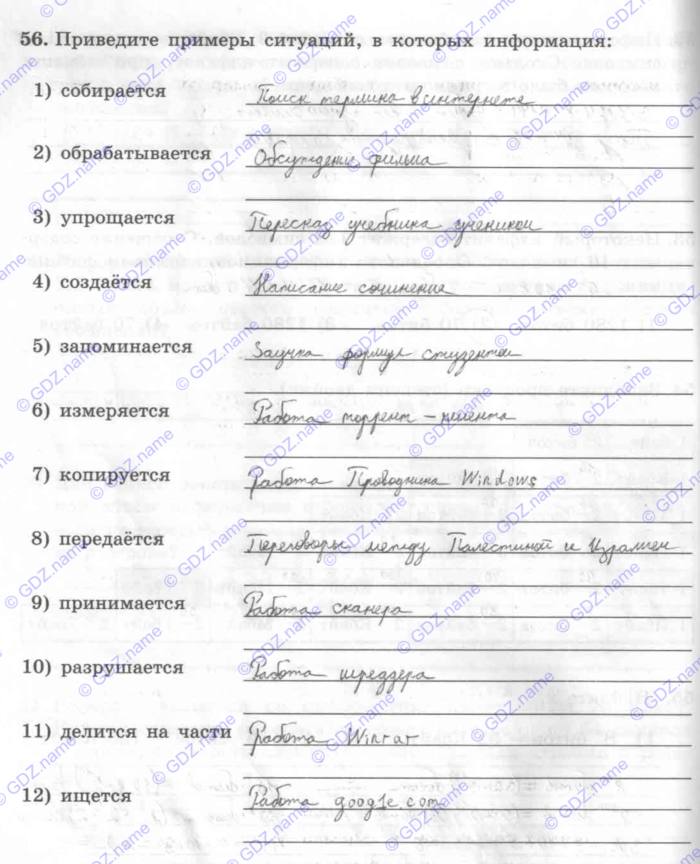 56. Приведите примеры ситуаций, в которых информация:
1) собирается Поиск термина в интернете
2) обрабатывается Обсуждение фильма
3) упрощается Пересказ учебника учеником
4) создаётся Написание сочинения
5) запоминается Заучка формул студентом
6) измеряется Работа торрент-клиента
7) копируется Работа Проводника Windows
8) передаётся Переговоры между Палестиной и Израилем
9) принимается Работа сканера
10) разрушается Работа шреддера
11) делится на части Работа Winrar
12) ищется Работа google.com
© GDZ.name